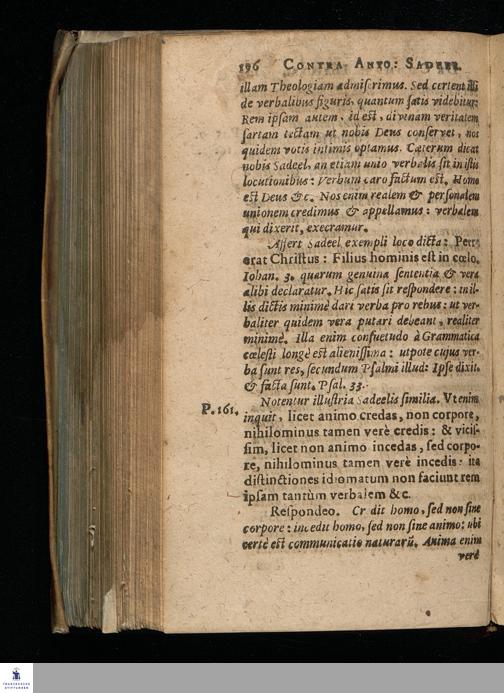 196 CONTRA ANTO: SADEEL.
illam Theologiam admiserimus. Sed certent illi
de verbalibus figuris, quantum satis videbitur:
Rem ipsam autem, id est, divinam veritatem
sartam tectam ut nobis Deus conservet, nos
quidem votis intimis optamus. Cæterum dicat
nobis Sadeel, an etiam unio verbalis sit in istis
locutionibus: Verbum caro factum est. Homo
est Deus &c. Nos enim realem & personalem
unionem credimus & appellamus: verbalem
qui dixerit, execramur.
Affert Sadeel exempli loco dicta: Petra
erat Christus: Filius hominis est in cœlo.
Iohan. 3. quarum genuina sententia & vera
alibi declaratur. Hic satis sit respondere: in il-
lis dictis minimè dari verba pro rebus: ut ver-
baliter quidem vera putari debeant, realiter
minimè. Illa enim consuetudo à Grammatica
cœlesti longè est alienissima: utpote cujus ver-
ba sunt res, secundum Psalmi illud: Ipse dixit,
& facta sunt. Psal. 33.
Notentur illustria Sadeelis similia. Vt enim
P. 161. inquit, licet animo credas, non corpore,
nihilominus tamen verè credis: & vicis-
sim, licet non animo incedas, sed corpo-
re, nihilominus tamen verè incedis: ita
distinctiones idiomatum non faciunt rem
ipsam tantùm verbalem &c.
Respondeo. Credit homo, sed non sine
corpore: incedit homo, sed non sine animo: ubi
certè est communicatio naturarū. Anima enim
verè
FRANCKESCHE
STIFTUNGEN